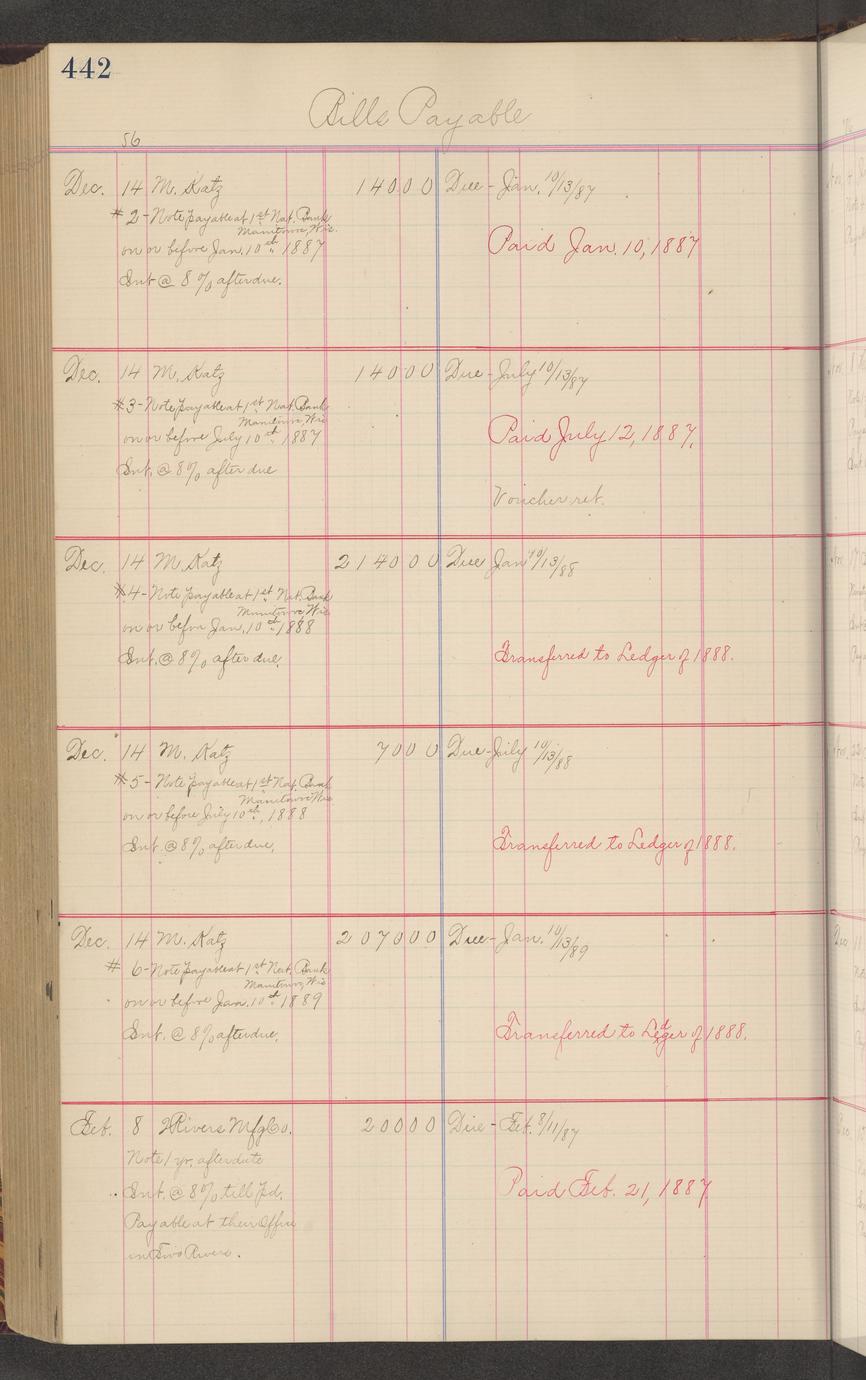 442
Bills Payable
56
Dec. 14 M. Katz 140 00 Due - Jan. 10/13/87
#2 - Note payable at 1st Nat. Bank
Manitowoc, Wis.
on or before Jan. 10th 1887 Paid Jan. 10, 1887
Int @ 8% after due.
Dec. 14 M. Katz 140 00 Due - July 10/13/87
#3 - Note payable at 1st Nat. Bank
Manitowoc, Wis
on or before July 10th 1887 Paid July 12, 1887.
Int. @ 8% after due
Voucher ret.
Dec. 14 M. Katz 2140 00 Due Jan 10/13/88
#4 - Note payable at 1st Nat. Bank
Manitowoc Wis
on or before Jan. 10th 1888
Int. @ 8% after due. Transferred to Ledger of 1888.
Dec. 14 M. Katz 70 00 Due - July 10/13/88
#5 - Note payable at 1st Nat. Bank
Manitowoc Wis
on or before July 10th, 1888
Int. @ 8% after due, Transferred to Ledger of 1888.
Dec. 14 M. Katz 2070 00 Due - Jan. 10/13/89
# 6 - Note payable at 1st Nat. Bank
Manitowoc, Wis
on or before Jan. 10th 1889
Int. @ 8% after due. Transferred to Ledger of 1888.
Feb. 8 2Rivers Mfg Co. 200 00 Due - Feb. 8/11/87
Note 1 yr. after date
Int. @ 8% till pd. Paid Feb. 21, 1887
Payable at their Office
in Two Rivers.